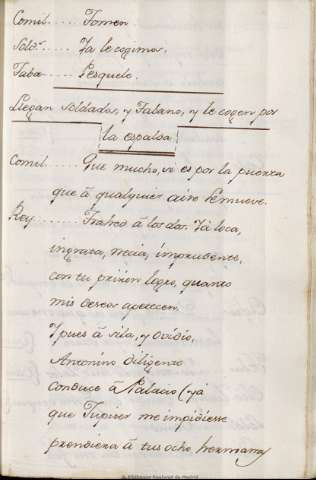 Comil..... Tomen
Sold.s.... Ya le cogimos.
Taba..... Pesquele.
Llegan Soldados, y Tabano, y le cogen por
la espalda
Comil..... Que mucho, si es por la puerta
que á qualquier aire se mueve.
Rey...... Trahed á los dos. Ya loca,
ingrata, necia, imprudente,
con tu prision logro, quanto
mis deseos apetecen.
Y pues á Sila, y Ovidio,
Antonino diligente
conduce á Palacio (ya
que Jupiter me impidiese
prendiera á tus ocho hermanas
Biblioteca Nacional de Madrid